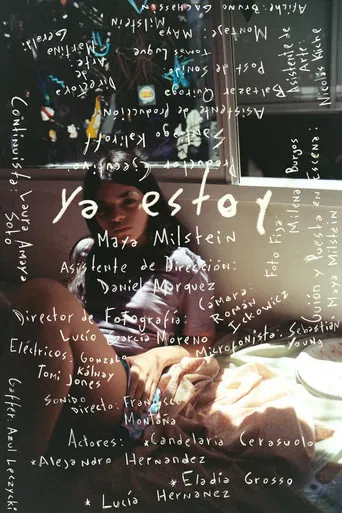 Afiche: Bruno
Montaje: Maya
Milstein
Post de Sonido:
Tomas Luque
Asistente de producción:
Quiroga
Productor Ejecutivo:
Kalikoff
de
Arte:
Martina
Asistente de
Arte:
Nicolás Kuche
ya estoy
Maya Milstein
Asistente de Dirección:
Daniel Marquez
Director de Fotografía:
Lucío García Moreno
Cámara:
Román
Foto Fija:
Milena
Burgos
Guión y Puesta en Escena:
Maya Milstein
Microfonista: Sebastián
Young
Eléctricos: Gonzalo
Kálnay
Tomi Jones
Sonido
Directo: Francisco
Montaña
Continuista: Laura Amaya
Soto
Gaffer: Azul Leczycki
Actores: * Candelaria Cerasuolo
* Alejandro Hernandez
* Eladia Grosso
* Lucía Hernanez